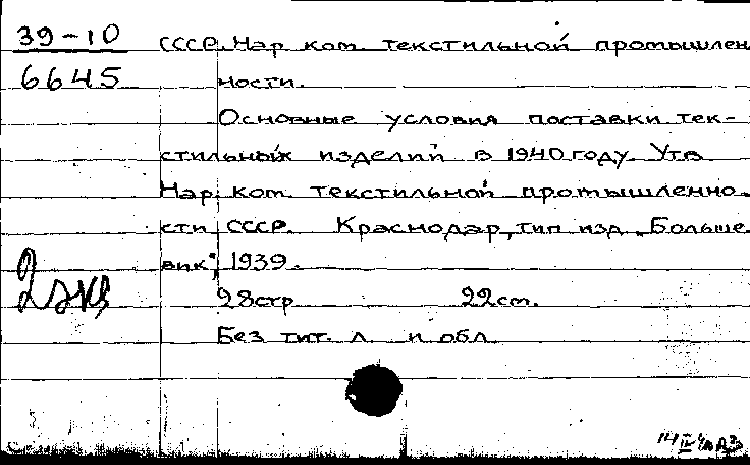 39-10
6645
СССР. Нар. ком. текстильной промышлен
ности.
Основные условия поставки тек-
стильных изделий в 1940 году. Утв.
Нар. ком. текстильной промышленно-
сти СССР. Краснодар, тип. изд. „Больше
вик", 1939.
28 стр. 22 cm.
Без тит. л. и обл.
2 экз